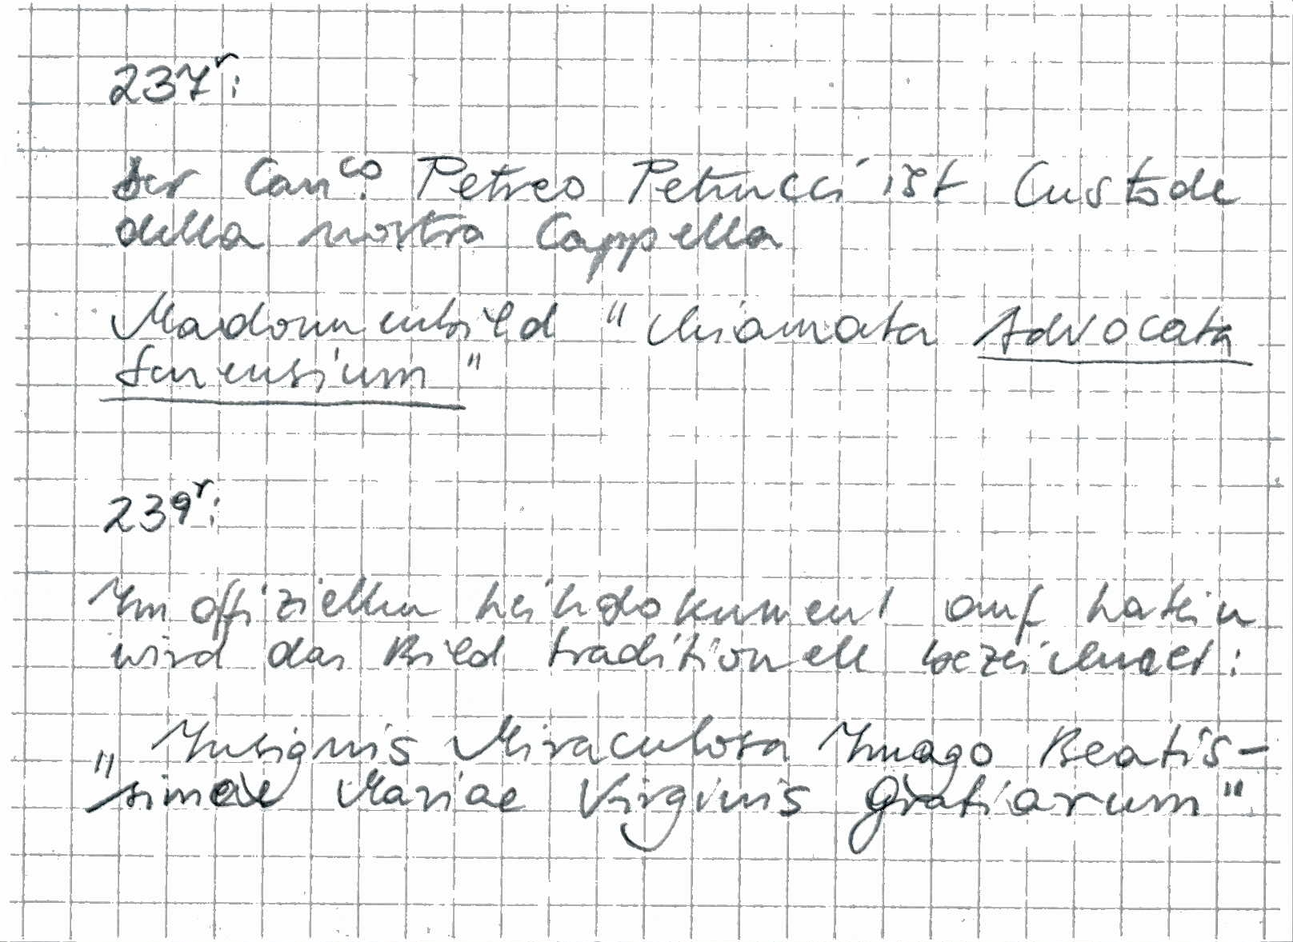 237r:
Der Canco. Petreo Petrucci ist Custode
della nostra Cappella
Madonnenbild "chiamata Advocata
Senensium"
239r:
Im offiziellen Leihdokument auf Latein
wird das Bild traditionell bezeichnet:
„Insignis Miraculosa Imago Beatis-
simae Mariae Virginis Gratiarum"